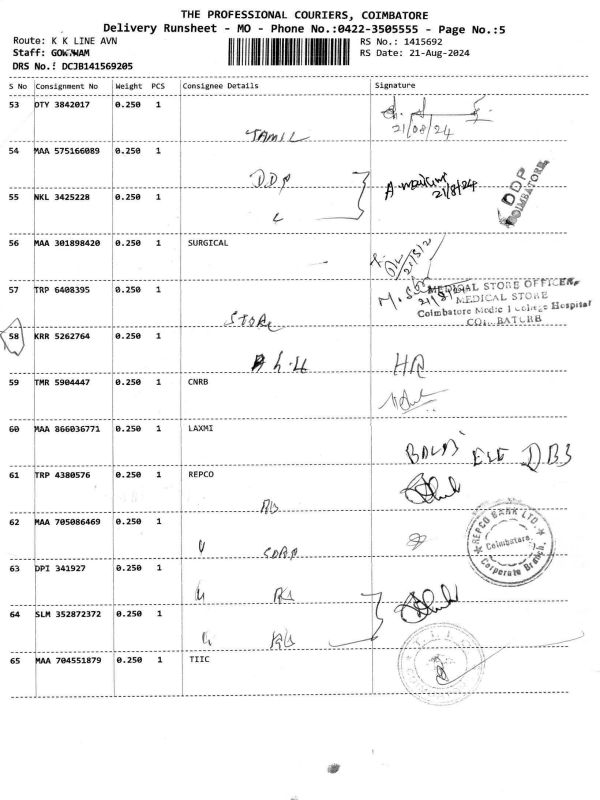 THE PROFESSIONAL COURIERS, COIMBATORE
Delivery Runsheet - MO - Phone No.:0422-3505555 - Page No.:5
Route: K K LINE AVN
RS No.: 1415692
Staff: GOWHAM
RS Date: 21-Aug-2024
DRS No.: DCJB141569205
S No Consignment No Weight PCS Consignee Details Signature
53 DTY 3842017 0.250 1
21/08/24
TAMIL
54 MAA 575166089 0.250 1
DDP
21/8/24
DDP
COIMBATORE
55 NKL 3425228 0.250 1
56 MAA 301898420 0.250 1 SURGICAL
57 TRP 6408395 0.250 1
MEDICAL STORE OFFICER,
MEDICAL STORE
Coimbatore Medical College Hospital
STORE
58 KRR 5262764 0.250 1
HR
59 TMR 5904447 0.250 1 CNRB
60 MAA 866036771 0.250 1 LAXMI
61 TRP 4380576 0.250 1 REPCO
62 MAA 705086469 0.250 1
REPCO BANK LTD.
Coimbatore
Corporate Branch.
63 DPI 341927 0.250 1
64 SLM 352872372 0.250 1
65 MAA 704551879 0.250 1 TIIC